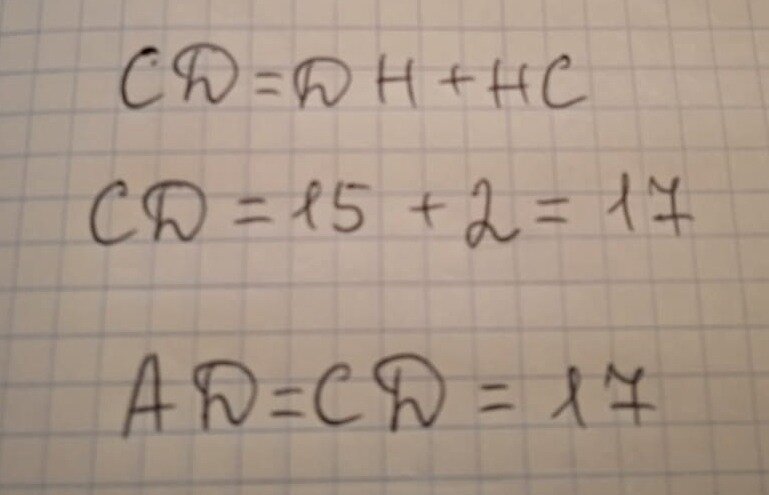 CD=DH+HC
CD=15+2=17
AD=CD=17